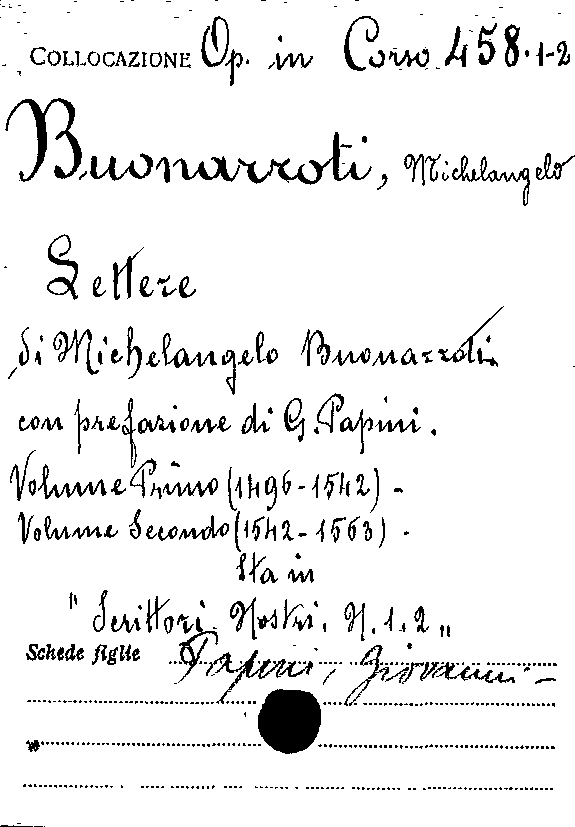 COLLOCAZIONE Op. in Corso 458.1-2
Buonarroti, Michelangelo
Lettere
di Michelangelo Buonarroti.
con prefazione di G. Papini.
Volume Primo (1496-1542) -
Volume Secondo (1542-1563) -
Sta in
" Scrittori Nostri. N. 1. 2 „
Schede figlie Papini, Giovanni -